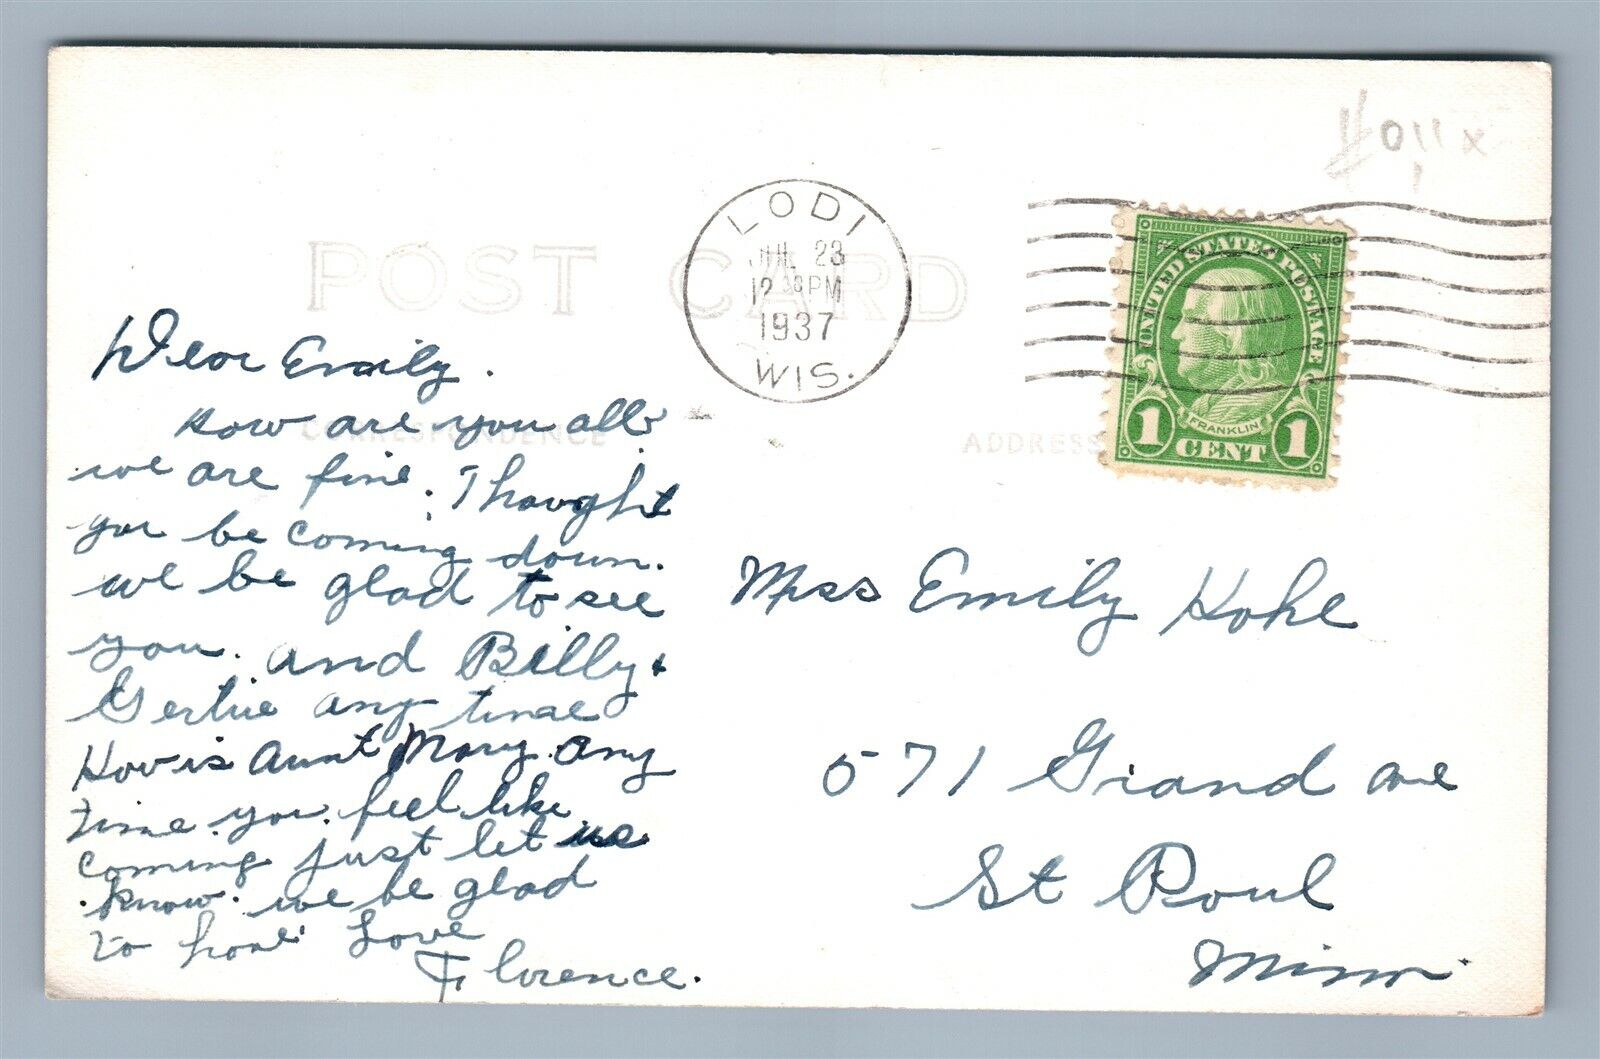 #011x
LODI
JUL 23
12 30 PM
1937
WIS.
UNITED STATES POSTAGE
FRANKLIN
1 CENT 1
POST CARD
CORRESPONDENCE
ADDRESS
Dear Emily.
How are you all
we are fine. Thought
you be coming down.
we be glad to see
you. and Billy &
Gertie any time
How is Aunt Mary. any
time you feel like
coming just let us
know. we be glad
to have Love
Florence.
Miss Emily Hohl
571 Grand Ave
St Paul
Minn.